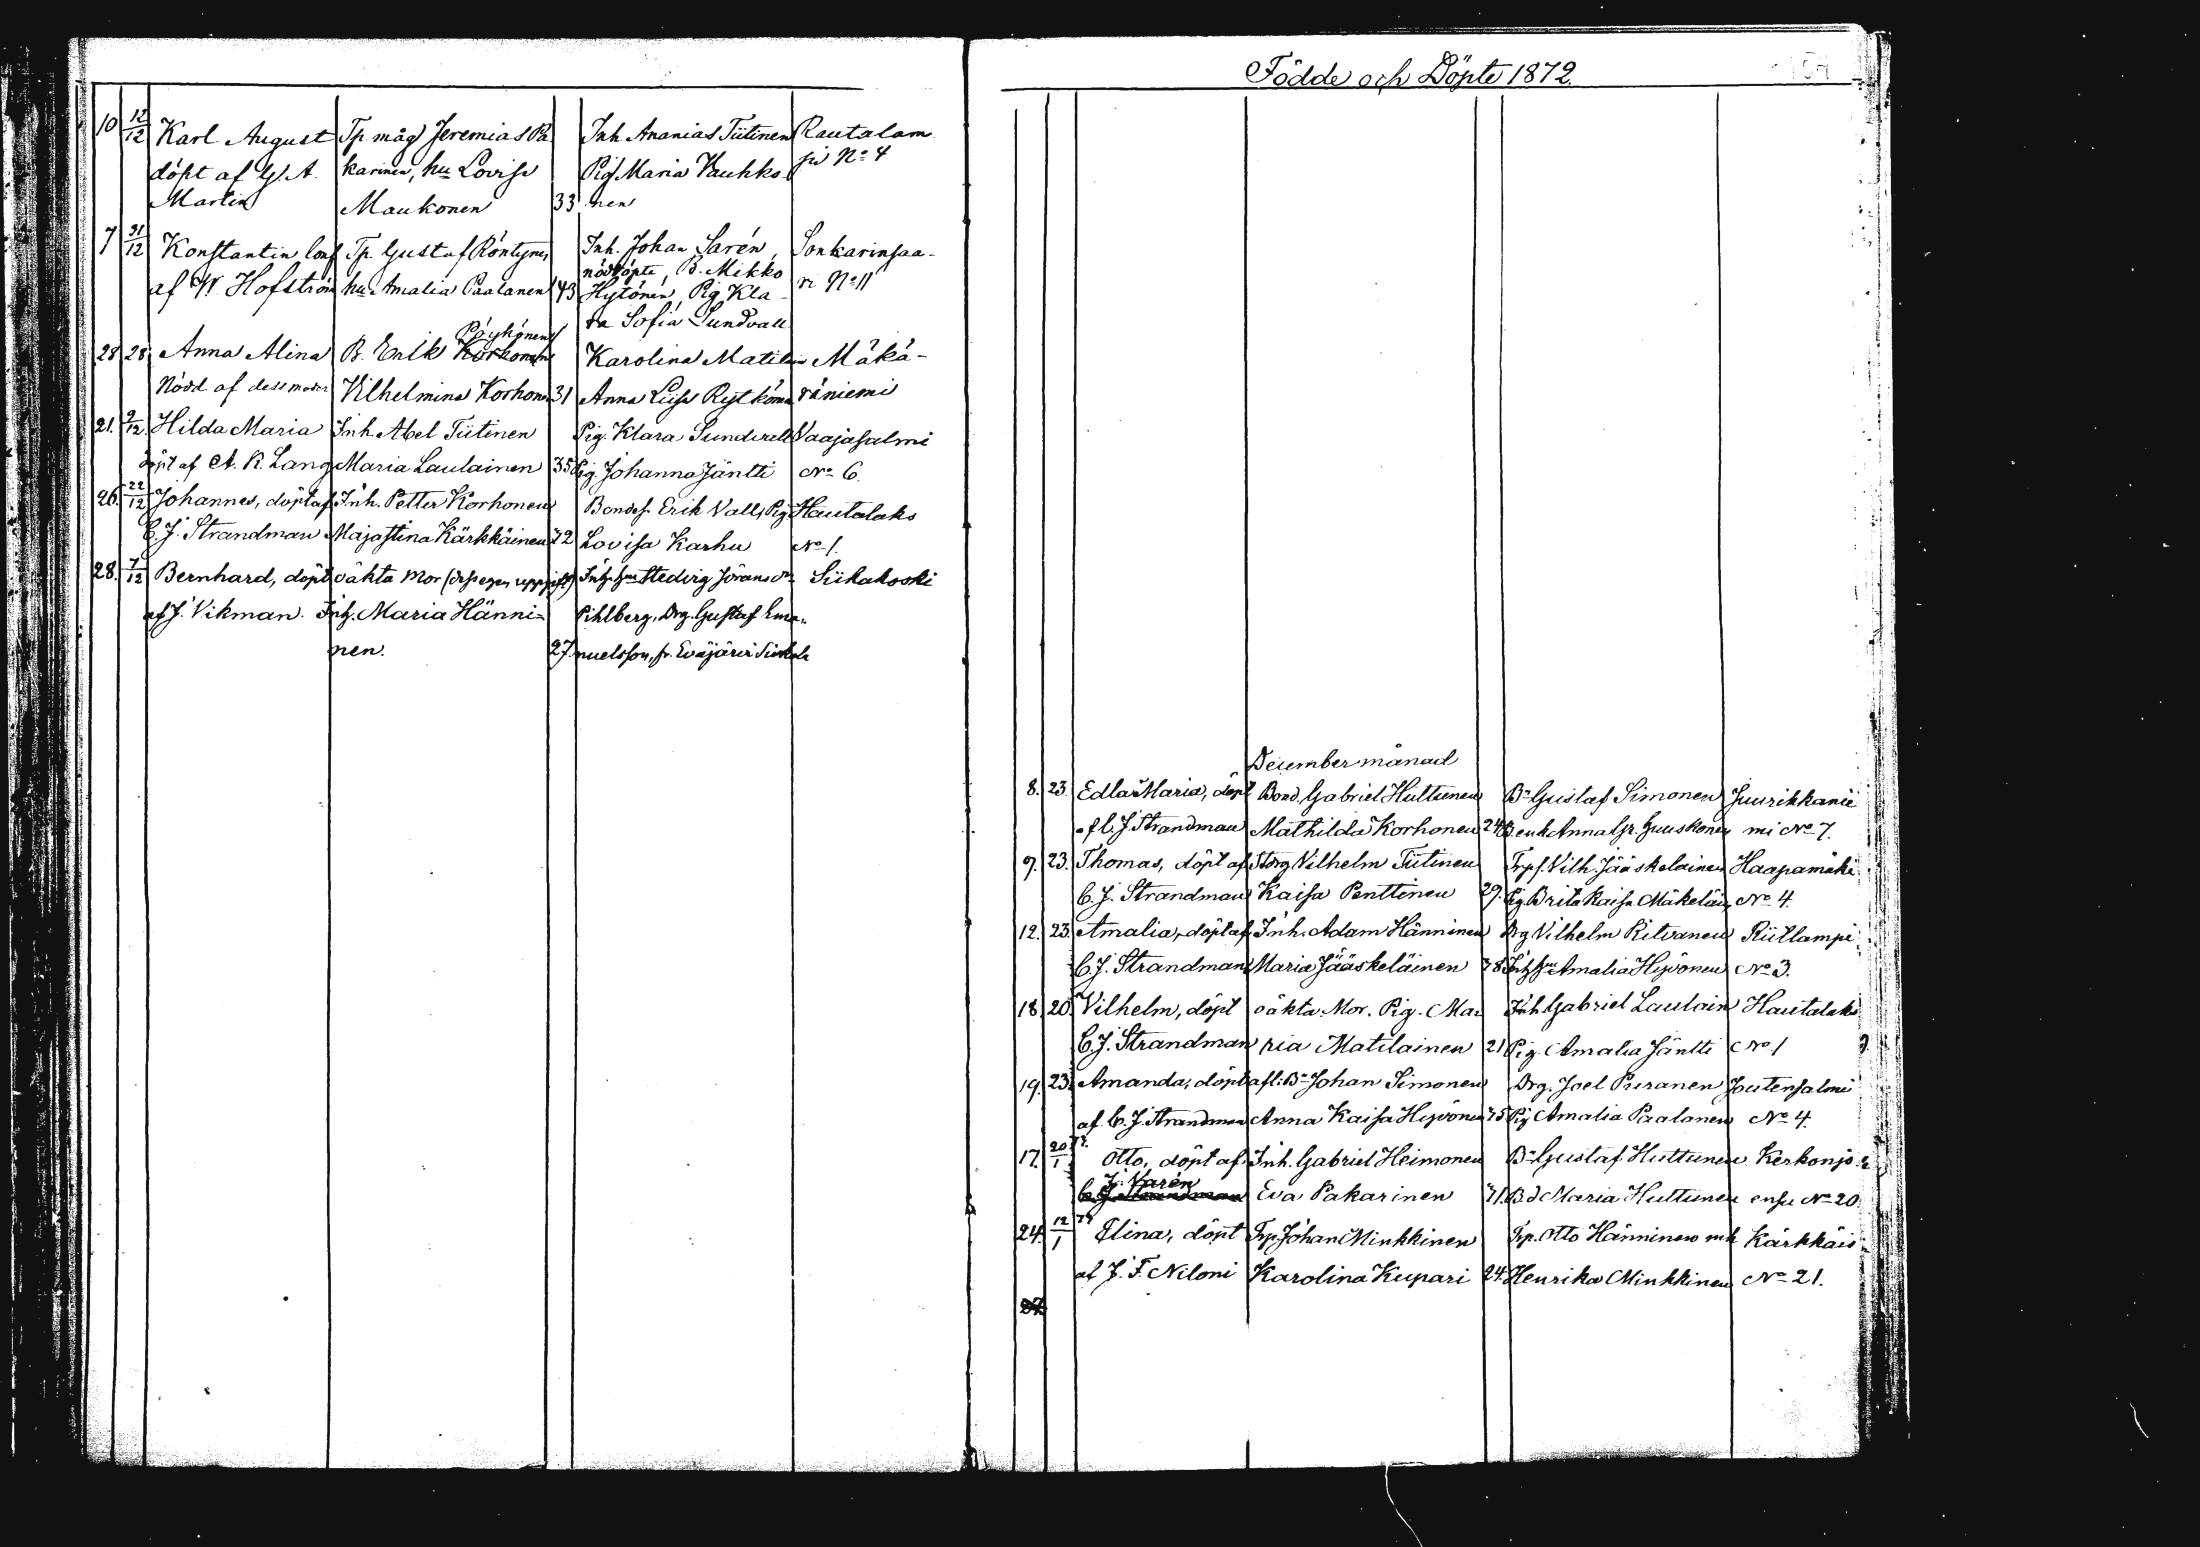 10 12/12 Karl August Tp måg Jeremias Pa Inh Ananias Tiitinen Rautalam
döpt af G. A. karinen, hu Lovisa Pig Maria Kauhko- pi No 4
Martin Maukonen 33 nen
7 31/12 Konstantin conf Tp. Gustaf Röntynen Inh. Johan Sarén, Sonkarinsaa-
nöddöpte, B. Mikko
af W Hofström hu Amalia Paalanen 43 Hytönen, Pig Kla- ri No 11
ra Sofia Sundvall
Pöyhönen
28 28 Anna Alina B. Erik Korhonen Karolina Matilain Mäkä-
Nöd af dess moder Vilhelmina Korhonen 31 Anna Liisa Rytkönen räniemi
21. 9/12. Hilda Maria Inh Abel Tiitinen Pig. Klara Sundvall Vaajasalmi
döpt af A. R. Lang Maria Laulainen 35 Pig. Johanna Jäntti No 6.
26. 22/12 Johannes, döpt af Inh. Petter Korhonen Bondes. Erik Vall, Pig Hautalaks
C. J. Strandman Majastina Kärkkäinen 32 Lovisa Karhu No 1.
28. 7/12 Bernhard, döpt oäkta Mor Hedvig Siikakoski
af J. Vikman. Inh. Maria Hänni- Pihlberg, Drg. Gustaf Ema-
nen. 27. nuelsson, fr. Eväjärvi
Födde och Döpte 1872.
December månad
8. 23. Edla Maria, döpt Bond. Gabriel Huttunen Bn Gustaf Simonen Juurikkanie
af C. J. Strandman Mathilda Korhonen 24 Anna mi No 7.
9. 23. Thomas, döpt af Vilhelm Tiitinen Trps. Vilh. Jääskelainen Haapamäki
C. J. Strandman Kaisa Penttinen 29. Pig. Brita Kaisa Mäkeläin No 4.
12. 23. Amalia, döpt af Inh. Adam Hänninen Drg Vilhelm Ritvanen Riitlampi
C. J. Strandman Maria Jääskeläinen 38 Amalia Hyvönen No 3.
18. 20. Vilhelm, döpt oäkta. Mor. Pig. Ma- Inh Gabriel Laulain Hautalaks
C. J. Strandman ria Matilainen 21 Pig. Amalia Jäntti No 1
19. 23. Amanda, döpt afl. Bn Johan Simonen Drg. Joel Puranen Joutensalmi
af C. J. Strandman Anna Kaisa Hyvönen 35 Pig Amalia Paalanen No 4.
17. 20/1 73. Otto, döpt af Inh. Gabriel Heimonen Bn Gustaf Huttunen Kerkonjo
J. Varén
C. J. Strandman Eva Pakarinen 31. Bd Maria Huttunen ensu No 20
24. 12/1 73 Elina, döpt Trp Johan Minkkinen Trp. Otto Hänninen mh Kärkkäis
af J. F. Niloni Karolina Kupari 24. Henrika Minkkinen No 21.